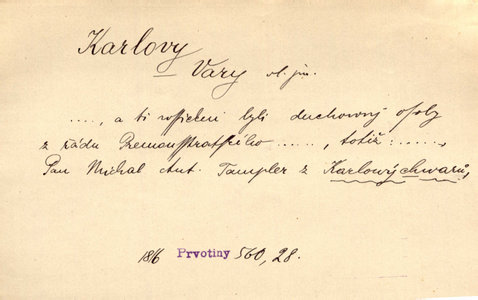 Karlovy
Vary vl. jm.
...., a ti wssickni byli duchowný osoby
z řádu Premonstratského ....., totiž : .....,
Pan Michal Ant. Tampler z Karlowých warů,
1816 Prvotiny 560, 28.